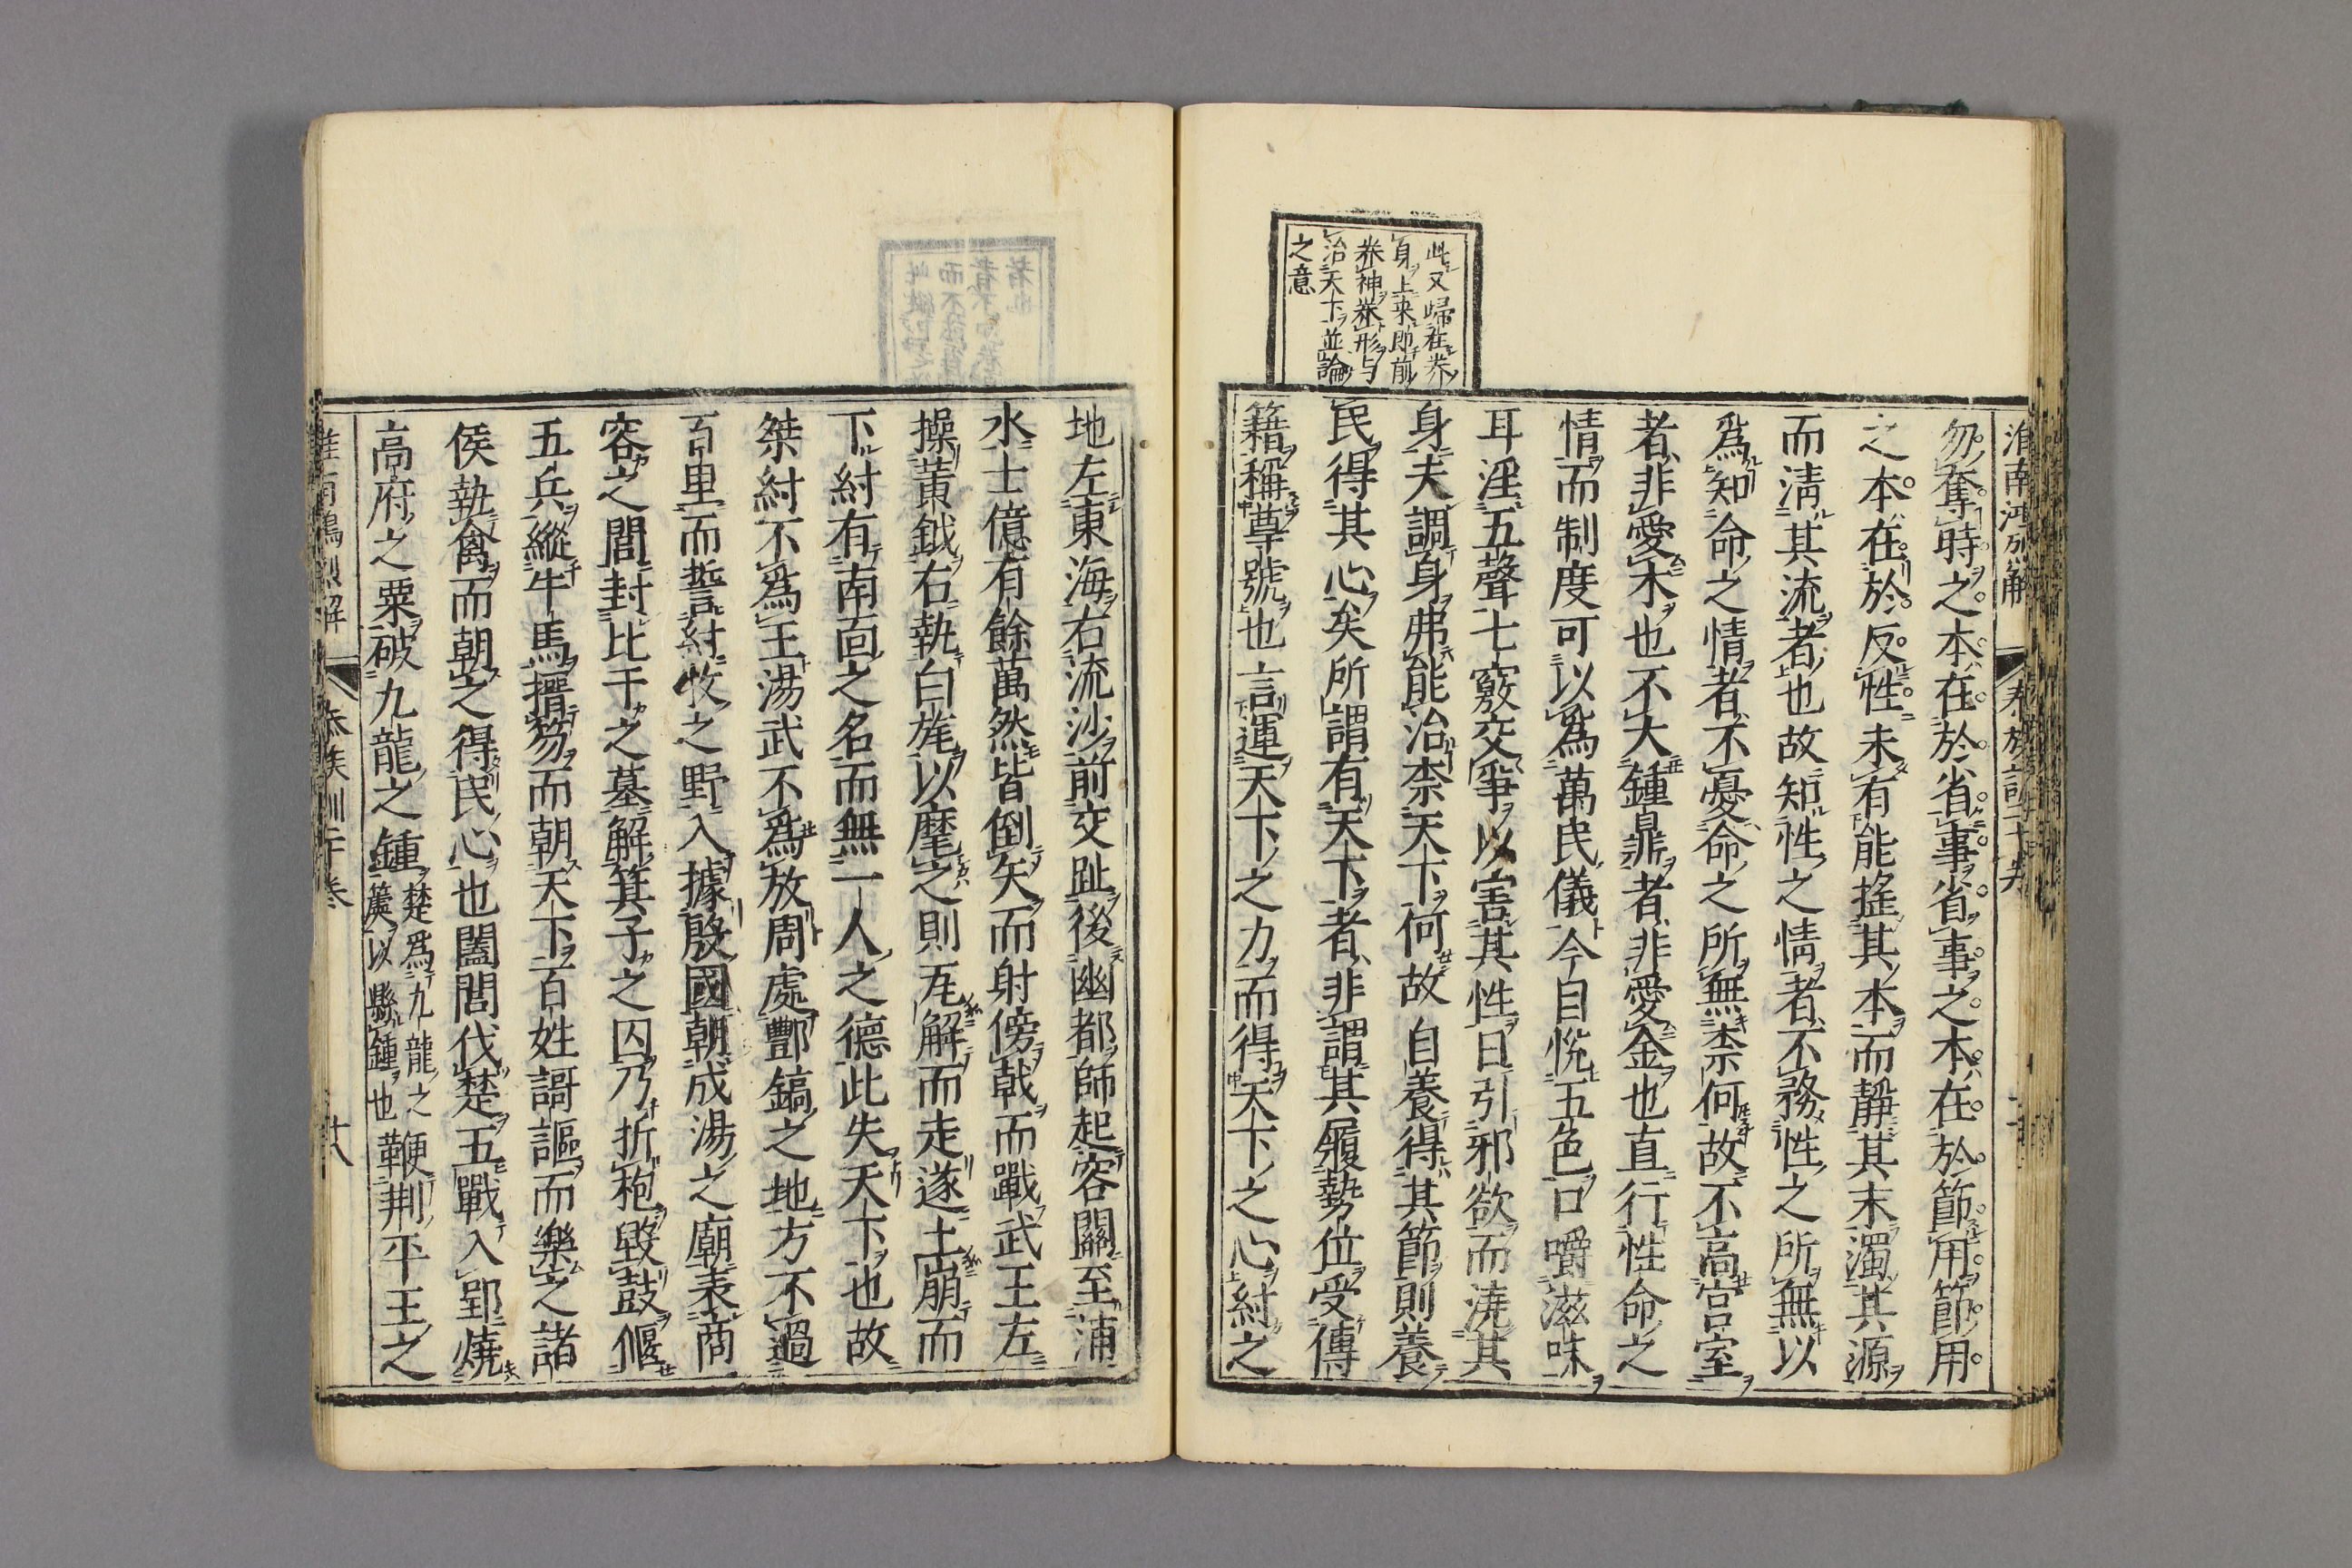 此又歸在养
身上來即前
养神养形与
治天下並論
之意
淮南鴻烈解
泰族訓二十卷
勿奪時之本在於省事省事之本在於節用節用
之本在於反性未有能搖其本而靜其末濁其源
而淸其流者也故知性之情者不務性之所無以
爲知命之情者不憂命之所無柰何故不高宮室
者非愛木也不大鍾鼎者非愛金也直行性命之
情而制度可以爲萬民儀今目悅五色口嚼滋味
耳淫五聲七竅交爭以害其性日引邪欲而澆其
身夫調身弗能治柰天下何故自養得其節則養
民得其心矣所謂有天下者非謂其履勢位受傳
籍稱尊號也言運天下之力而得天下之心紂之
地左東海右流沙前交趾後幽都師起容關至浦
水士億有餘萬然皆倒矢而射傍戟而戰武王左
操黃鉞右執白旄以麾之則瓦解而走遂土崩而
下紂有南面之名而無一人之德此失天下也故
桀紂不爲王湯武不爲放周處酆鎬之地方不過
百里而誓紂牧之野入據殷國朝成湯之廟表商
容之閭封比干之墓解箕子之囚乃折枹毀鼓偃
五兵縱牛馬搢笏而朝天下百姓謌謳而樂之諸
侯執禽而朝之得民心也闔閭伐楚五戰入郢燒
高府之粟破九龍之鍾楚爲九龍之簴以縣鍾也鞭荆平王之
淮南鴻烈解
泰族訓二十卷
廿八